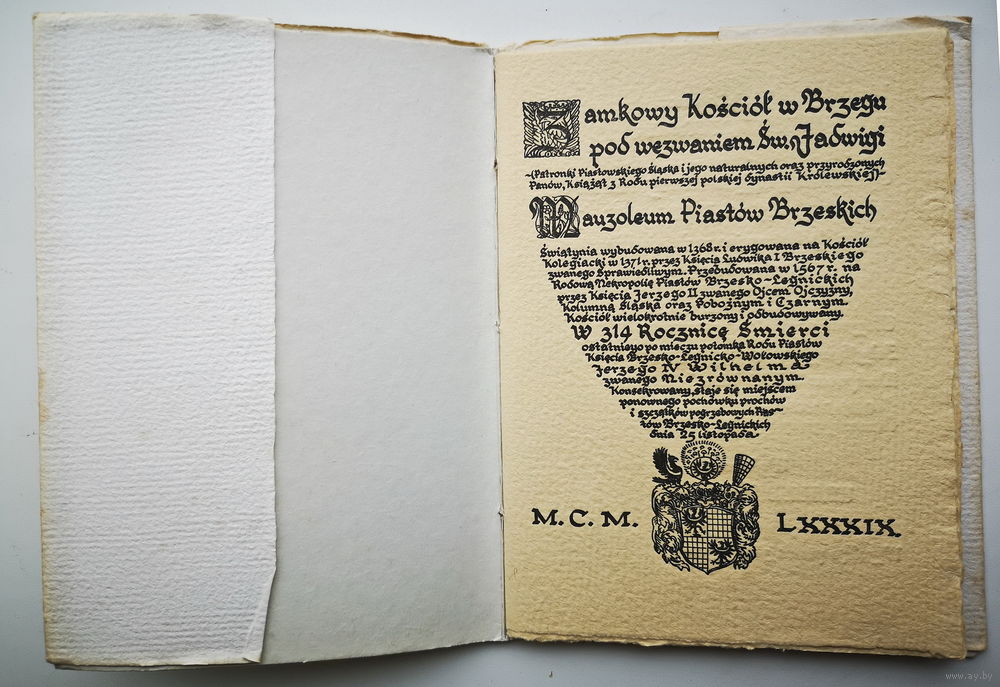 Zamkowy Kościół w Brzegu
pod wezwaniem Św. Jadwigi
~(Patronki Piastowskiego Śląska i jego naturalnych oraz przyrodzonych
Panów, Książąt z Rodu pierwszej polskiej dynastii Królewskiej)~
Mauzoleum Piastów Brzeskich
Świątynia wybudowana w 1368 r. i erygowana na Kościół
Kolegiacki w 1371 r. przez Księcia Ludwika I Brzeskiego
zwanego Sprawiedliwym. Przebudowana w 1567 r. na
Rodową Nekropolię Piastów Brzesko-Legnickich
przez Księcia Jerzego II zwanego Ojcem Ojczyzny,
Kolumną Śląska oraz Pobożnym i Czarnym.
Kościół wielokrotnie burzony i odbudowywany.
W 314 Rocznicę Śmierci
ostatniego po mieczu potomka Rodu Piastów
Księcia Brzesko-Legnicko-Wołowskiego
Jerzego IV Wilhelma
zwanego Niezrównanym.
Konsekrowany, staje się miejscem
ponownego pochówku prochów
i szczątków pogrzebowych Pias~
tów Brzesko-Legnickich
dnia 25 listopada
M. C. M. LXXXIX.
www.ay.by